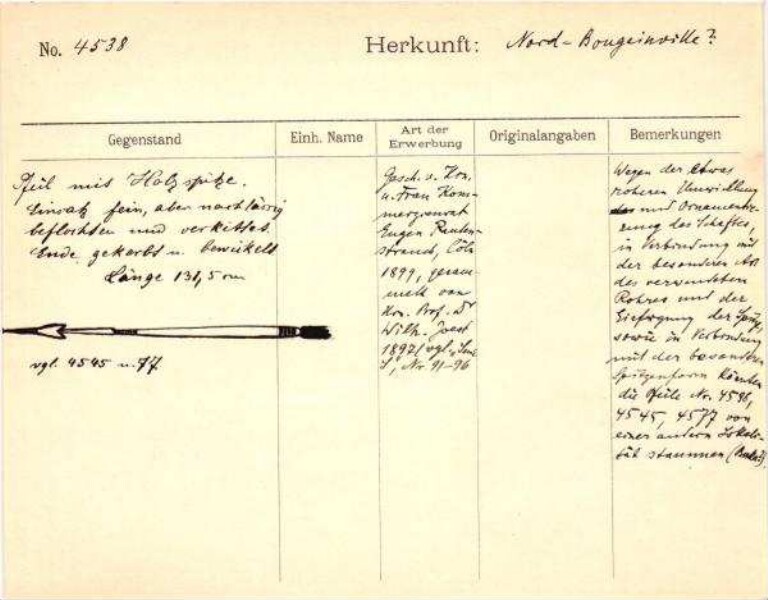 No. 4538
Herkunft: Nord-Bougeinville?
Gegenstand
Einh. Name
Art der
Erwerbung
Originalangaben
Bemerkungen
Pfeil mit Holzspitze.
Einsatz fein, aber nachlässig
beflochten und verkittet.
Ende gekerbt u. bewickelt
Länge 131,5 cm
vgl. 4545 u. 77
Gesch. v. Hrn.
u. Frau Kom-
merzienrat
Eugen Rauten-
strauch, Cöln
1899, gesam-
melt von
Hrn. Prof. Dr
Wilh. Joest
1897 (vgl.
Nr. 91-96
Wegen der etwas
roheren Umwicklung
und Ornamentie-
rung des Schaftes,
in Verbindung mit
der besonderen Art
des verwendeten
Rohres und der
Einfügung der Spitze,
sowie in Verbindung
mit der besonderen
Spitzenform könnten
die Pfeile Nr. 4536,
4545, 4577 von
einer andern Lokali-
tät stammen